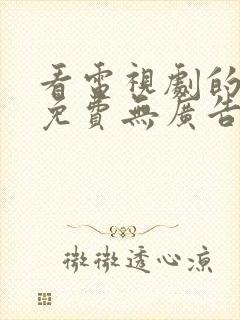 看電視劇的
免費無廣告
微微透心涼